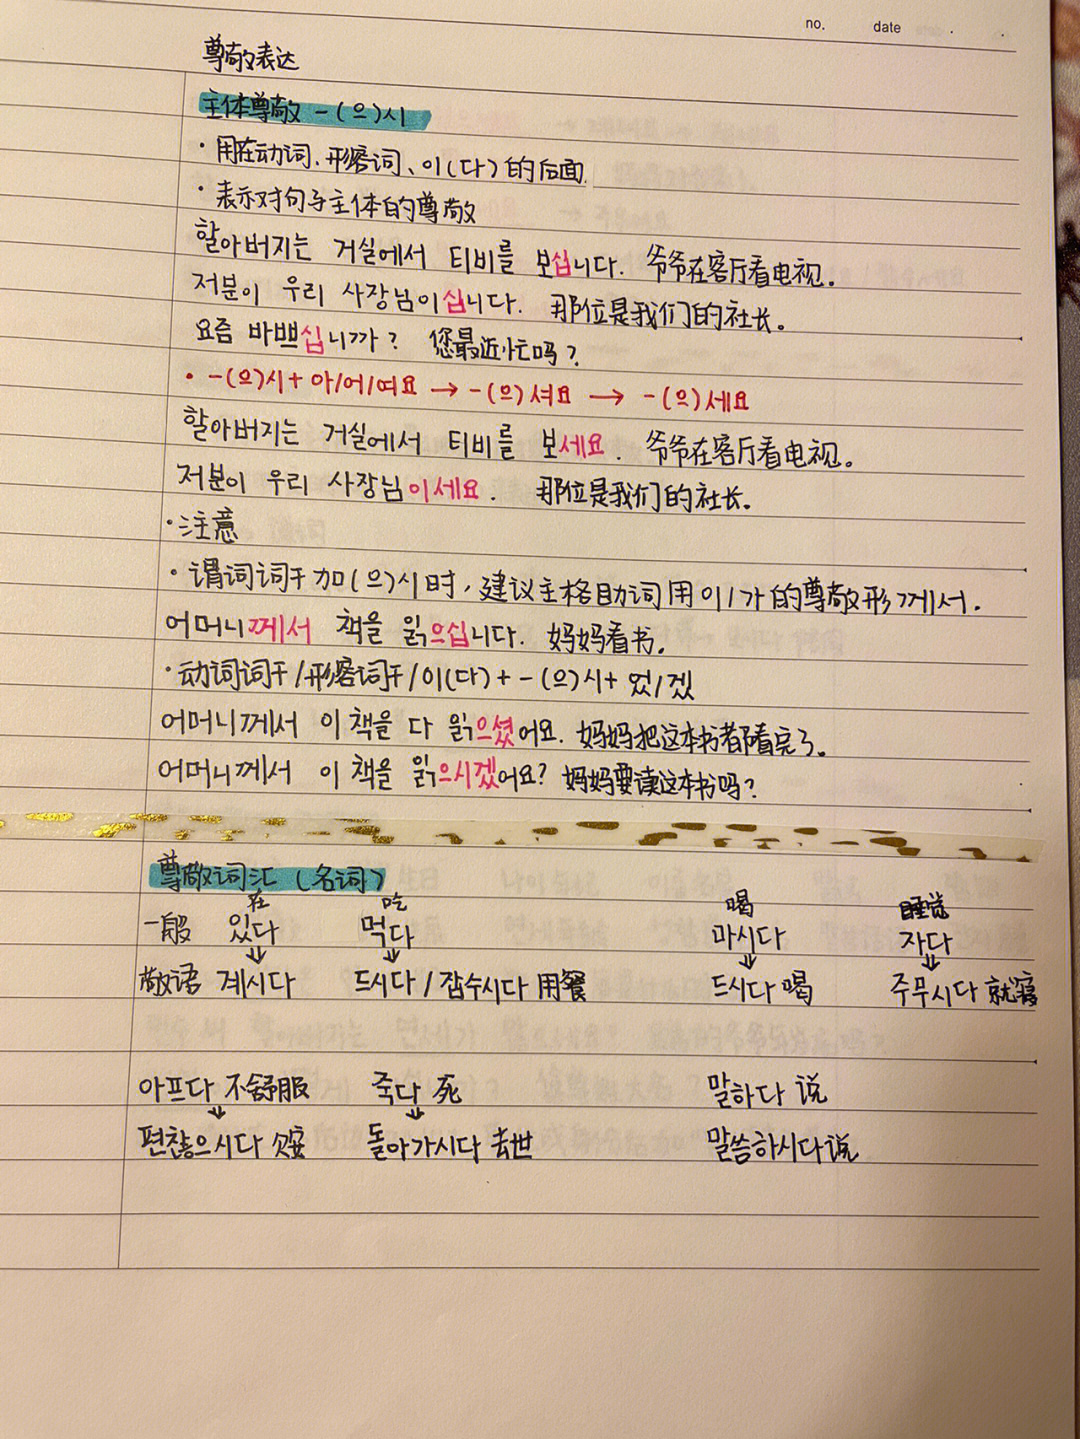 no. date
尊敬表达
主体尊敬 -(으)시
·用在动词、形容词、이(다)的后面.
·表示对句子主体的尊敬
할아버지는 거실에서 티비를 보십니다. 爷爷在客厅看电视。
저분이 우리 사장님이십니다. 那位是我们的社长。
요즘 바쁘십니까? 您最近忙吗?
·-(으)시+아/어/여요 → -(으)셔요 → -(으)세요
할아버지는 거실에서 티비를 보세요. 爷爷在客厅看电视。
저분이 우리 사장님이세요. 那位是我们的社长。
·注意
·谓词词干加(으)시时,建议主格助词用이/가的尊敬形께서.
어머니께서 책을 읽으십니다. 妈妈看书。
·动词词干/形容词干/이(다)+-(으)시+었/겠
어머니께서 이 책을 다 읽으셨어요. 妈妈把这本书都看完了。
어머니께서 이 책을 읽으시겠어요? 妈妈要读这本书吗?
尊敬词汇(名词)
在 吃 喝 睡觉
一般 있다 먹다 마시다 자다
敬语 계시다 드시다/잡수시다 用餐 드시다 喝 주무시다 就寝
아프다 不舒服 죽다 死 말하다 说
편찮으시다 欠安 돌아가시다 去世 말씀하시다 说